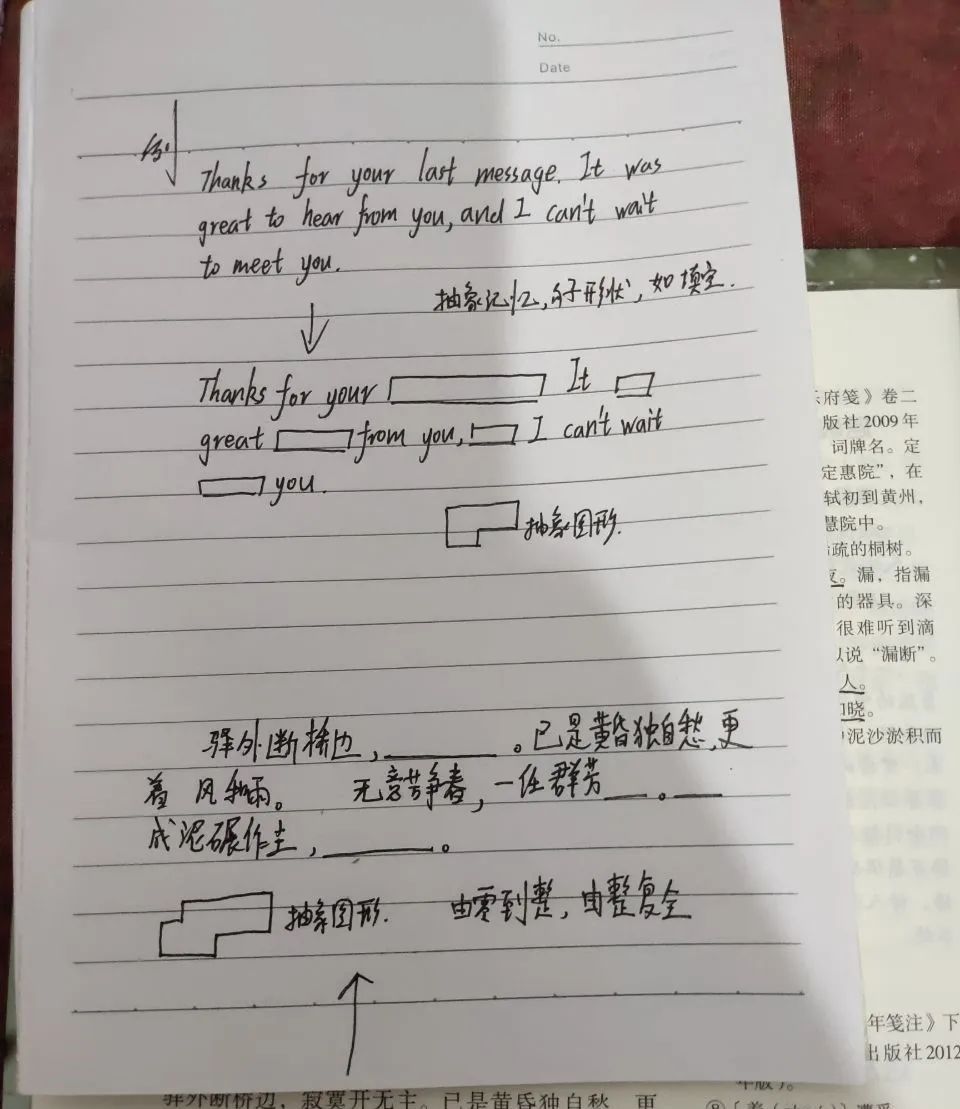 No.
Date
例
Thanks for your last message. It was
great to hear from you, and I can't wait
to meet you.
抽象记忆,句子形状,如填空.
Thanks for your It
great from you, I can't wait
you.
抽象图形.
驿外断桥边,______。已是黄昏独自愁,更
着 风和雨。 无意苦争春,一任群芳___。___
成泥碾作尘,______。
抽象图形. 由零到整,由整复全
府笺》卷二
版社2009年
词牌名。定
定惠院”,在
轼初到黄州,
慧院中。
疏的桐树。
。漏,指漏
的器具。深
很难听到滴
以说“漏断”。
人。
晓。
泥沙淤积而
年笺注》下
出版社2012
年版)。
驿外断桥边,寂寞开无主。已是黄昏独自愁,更